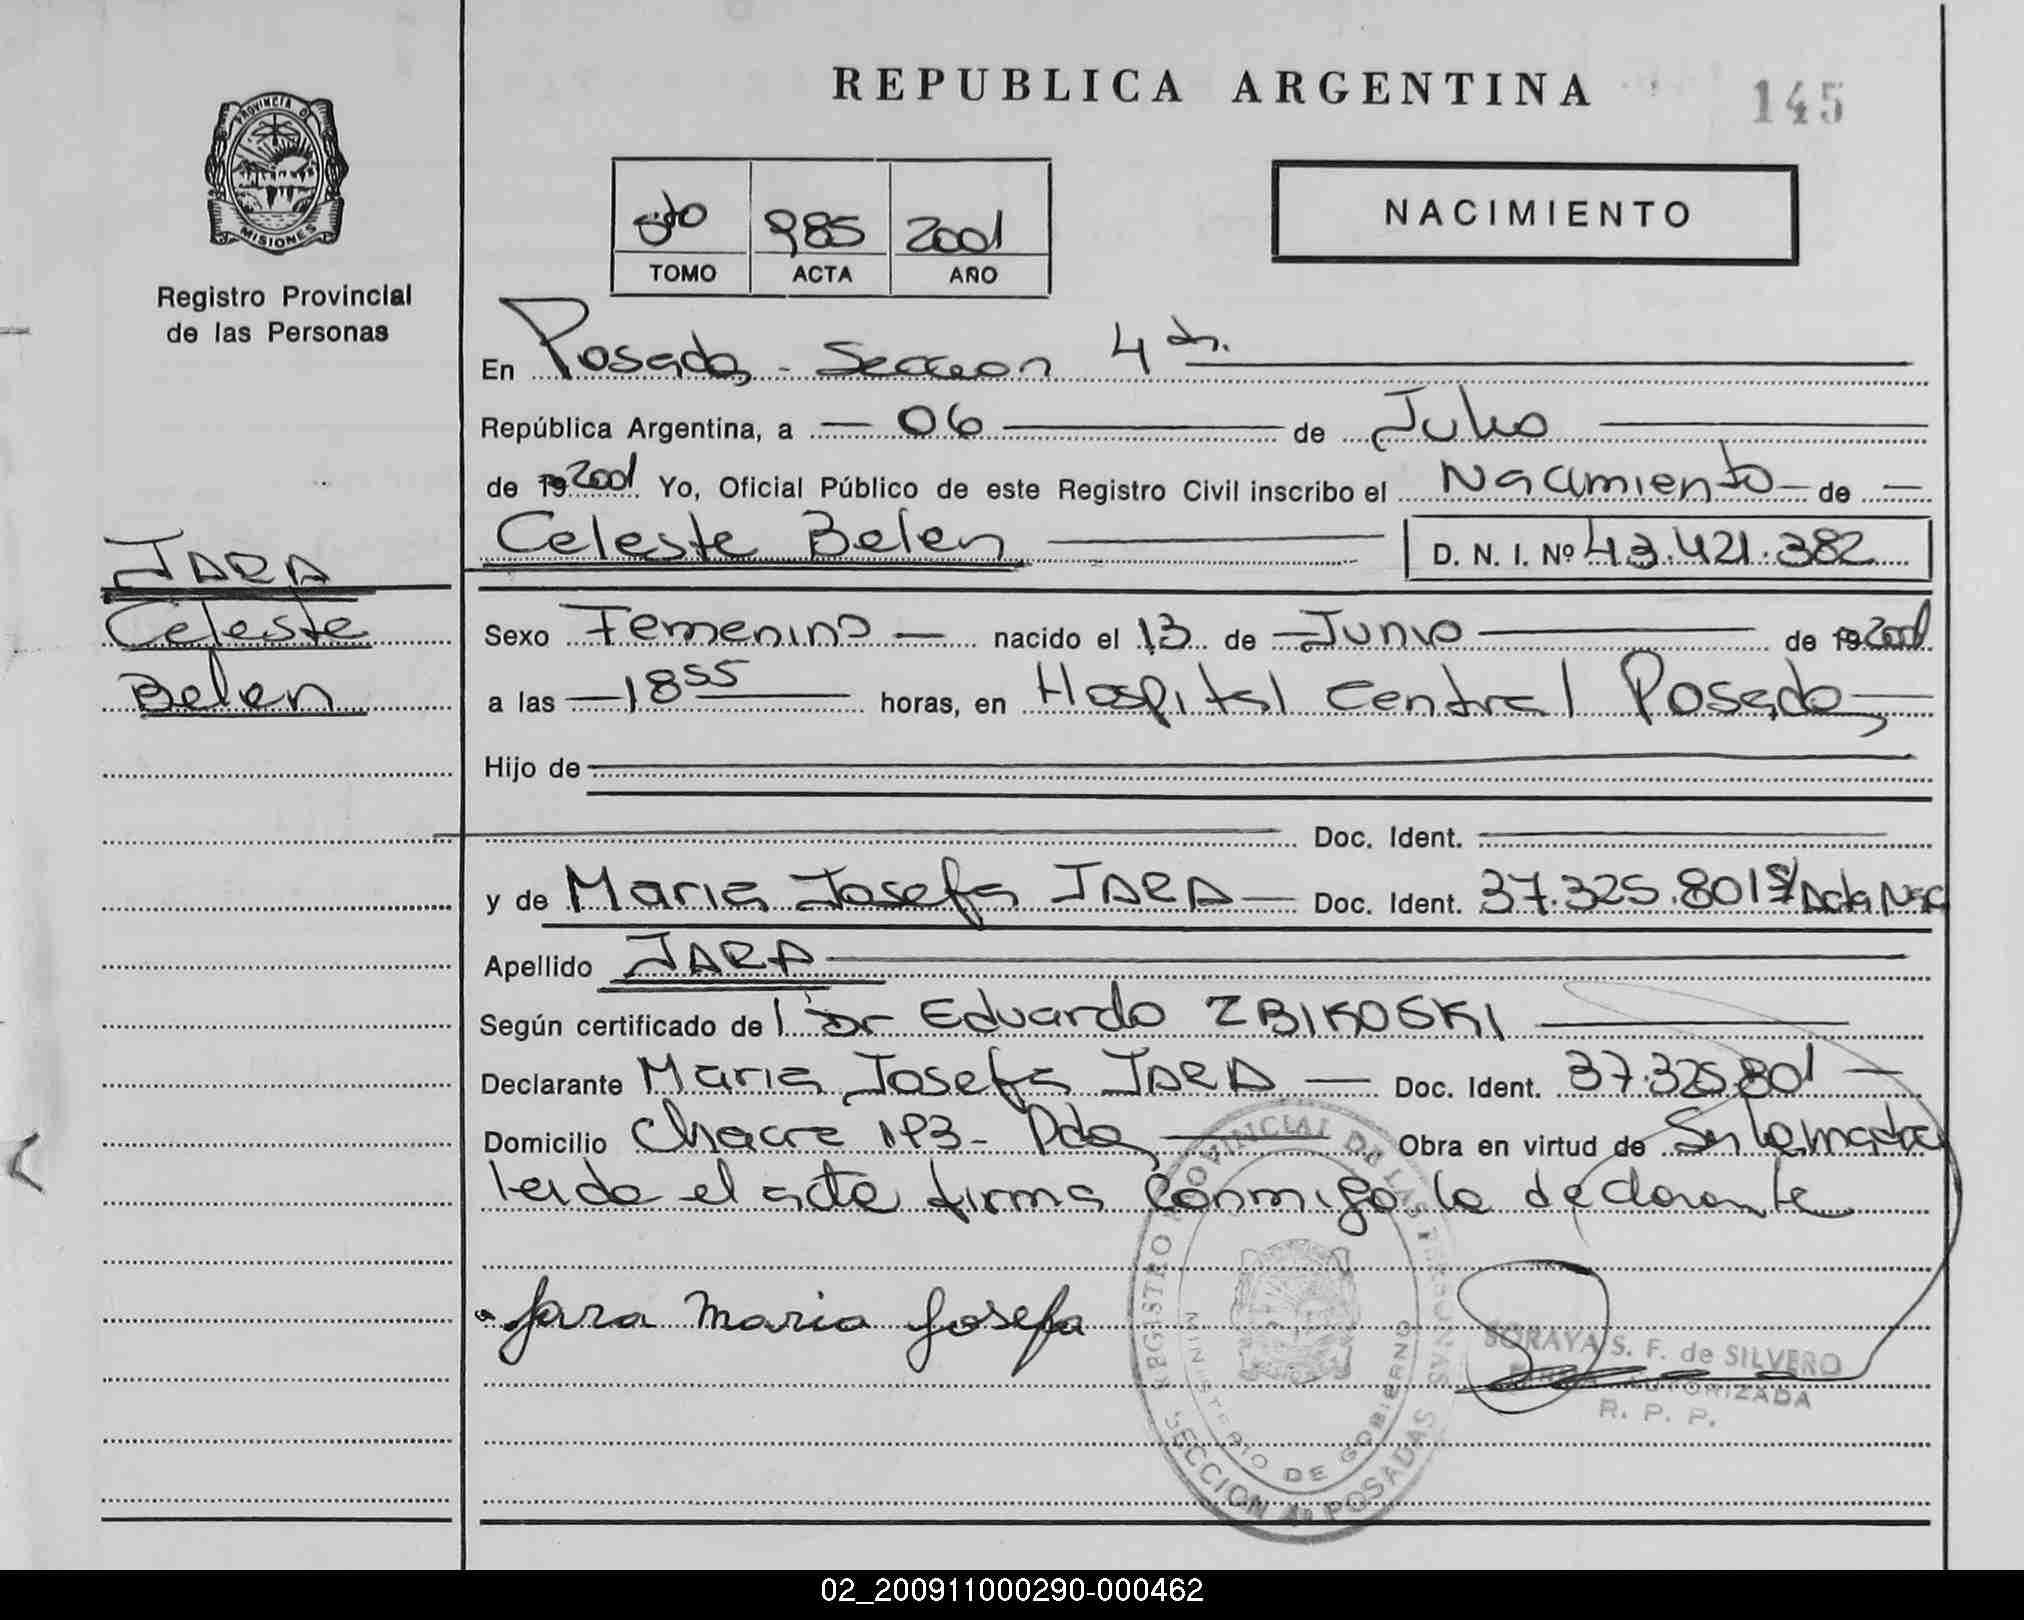 REPUBLICA ARGENTINA
145
PROVINCIA D
MISIONES
Registro Provincial
de las Personas
5to 985 2001
TOMO ACTA AÑO
NACIMIENTO
En Posadas - Seccion 4ta.
República Argentina, a 06 de Julio
de 19 2001 Yo, Oficial Público de este Registro Civil inscribo el Nacimiento de
Celeste Belen D. N. I. Nº 43.421.382
JARA
Celeste
Belen
Sexo Femenino nacido el 13 de Junio de 19 2001
a las 18 55 horas, en Hospital Central Posadas
Hijo de
Doc. Ident.
y de Maria Josefa JARA Doc. Ident. 37.325.801 S/ Acta Nac
Apellido JARA
Según certificado de l Dr Eduardo ZBIKOSKI
Declarante Maria Josefa JARA Doc. Ident. 37.325.801
Domicilio Chacra 193 - Pdas Obra en virtud de Ser la madre
leida el acta firma conmigo la declarante
Jara Maria Josefa
REGISTRO PROVINCIAL DE LAS PERSONAS
MINISTERIO DE GOBIERNO
SECCION 4ª POSADAS
SORAYA S. F. de SILVERO
FIRMA AUTORIZADA
R. P. P.
02_200911000290-000462